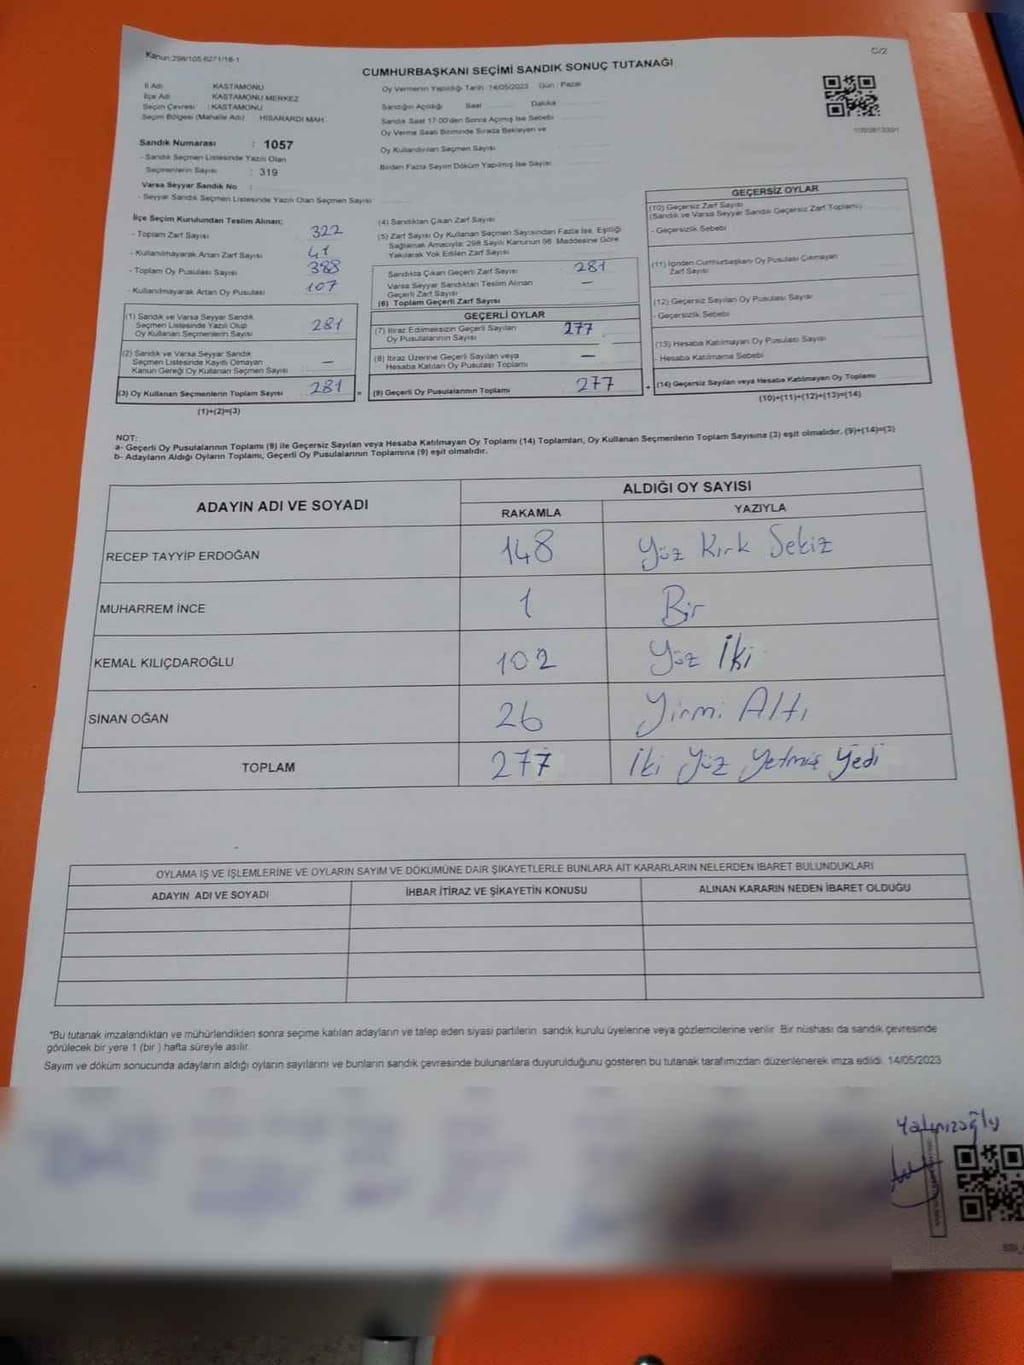 Kanun:298/105-6271/16-1
C/2
CUMHURBAŞKANI SEÇİMİ SANDIK SONUÇ TUTANAĞI
İl Adı KASTAMONU
İlçe Adı KASTAMONU MERKEZ
Seçim Çevresi : KASTAMONU
Seçim Bölgesi (Mahalle Adı) HİSARARDI MAH.
Oy Vermenin Yapıldığı Tarih :14/05/2023 Gün : Pazar
Sandığın Açıldığı Saat Dakika
Sandık Saat 17:00'den Sonra Açılmış İse Sebebi
Oy Verme Saati Bitiminde Sırada Bekleyen ve
Oy Kullandırılan Seçmen Sayısı
Birden Fazla Sayım Döküm Yapılmış İse Sayısı
Sandık Numarası : 1057
- Sandık Seçmen Listesinde Yazılı Olan
Seçmenlerin Sayısı : 319
Varsa Seyyar Sandık No :
- Seyyar Sandık Seçmen Listesinde Yazılı Olan Seçmen Sayısı
İlçe Seçim Kurulundan Teslim Alınan;
- Toplam Zarf Sayısı 322
- Kullanılmayarak Artan Zarf Sayısı 41
- Toplam Oy Pusulası Sayısı 388
- Kullanılmayarak Artan Oy Pusulası 107
(1) Sandık ve Varsa Seyyar Sandık
Seçmen Listesinde Yazılı Olup
Oy Kullanan Seçmenlerin Sayısı 281
(2) Sandık ve Varsa Seyyar Sandık
Seçmen Listesinde Kayıtlı Olmayan
Kanun Gereği Oy Kullanan Seçmen Sayısı —
(3) Oy Kullanan Seçmenlerin Toplam Sayısı 281
(1)+(2)=(3)
(4) Sandıktan Çıkan Zarf Sayısı
(5) Zarf Sayısı Oy Kullanan Seçmen Sayısından Fazla İse, Eşitliği
Sağlamak Amacıyla; 298 Sayılı Kanunun 98. Maddesine Göre
Yakılarak Yok Edilen Zarf Sayısı
Sandıkta Çıkan Geçerli Zarf Sayısı 281
Varsa Seyyar Sandıktan Teslim Alınan
Geçerli Zarf Sayısı —
(6) Toplam Geçerli Zarf Sayısı
GEÇERLİ OYLAR
(7) İtiraz Edilmeksizin Geçerli Sayılan
Oy Pusulalarının Sayısı 277
(8) İtiraz Üzerine Geçerli Sayılan veya
Hesaba Katılan Oy Pusulası Toplamı —
= (9) Geçerli Oy Pusulalarının Toplamı 277
GEÇERSİZ OYLAR
(10) Geçersiz Zarf Sayısı
(Sandık ve Varsa Seyyar Sandık Geçersiz Zarf Toplamı)
- Geçersizlik Sebebi
(11) İçinden Cumhurbaşkanı Oy Pusulası Çıkmayan
Zarf Sayısı
(12) Geçersiz Sayılan Oy Pusulası Sayısı
- Geçersizlik Sebebi
(13) Hesaba Katılmayan Oy Pusulası Sayısı
- Hesaba Katılmama Sebebi
+ (14) Geçersiz Sayılan veya Hesaba Katılmayan Oy Toplamı
(10)+(11)+(12)+(13)=(14)
NOT:
a- Geçerli Oy Pusulalarının Toplamı (9) ile Geçersiz Sayılan veya Hesaba Katılmayan Oy Toplamı (14) Toplamları, Oy Kullanan Seçmenlerin Toplam Sayısına (3) eşit olmalıdır. (9)+(14)=(3)
b- Adayların Aldığı Oyların Toplamı, Geçerli Oy Pusulalarının Toplamına (9) eşit olmalıdır.
ADAYIN ADI VE SOYADI
ALDIĞI OY SAYISI
RAKAMLA YAZIYLA
RECEP TAYYİP ERDOĞAN 148 Yüz Kırk Sekiz
MUHARREM İNCE 1 Bir
KEMAL KILIÇDAROĞLU 102 Yüz İki
SİNAN OĞAN 26 Yirmi Altı
TOPLAM 277 İki Yüz Yetmiş Yedi
OYLAMA İŞ VE İŞLEMLERİNE VE OYLARIN SAYIM VE DÖKÜMÜNE DAİR ŞİKAYETLERLE BUNLARA AİT KARARLARIN NELERDEN İBARET BULUNDUKLARI
ADAYIN ADI VE SOYADI İHBAR İTİRAZ VE ŞİKAYETİN KONUSU ALINAN KARARIN NEDEN İBARET OLDUĞU
"Bu tutanak imzalandıktan ve mühürlendikten sonra seçime katılan adayların ve talep eden siyasi partilerin sandık kurulu üyelerine veya gözlemcilerine verilir. Bir nüshası da sandık çevresinde
görülecek bir yere 1 (bir ) hafta süreyle asılır.
Sayım ve döküm sonucunda adayların aldığı oyların sayılarını ve bunların sandık çevresinde bulunanlara duyurulduğunu gösteren bu tutanak tarafımızdan düzenlenerek imza edildi. 14/05/2023